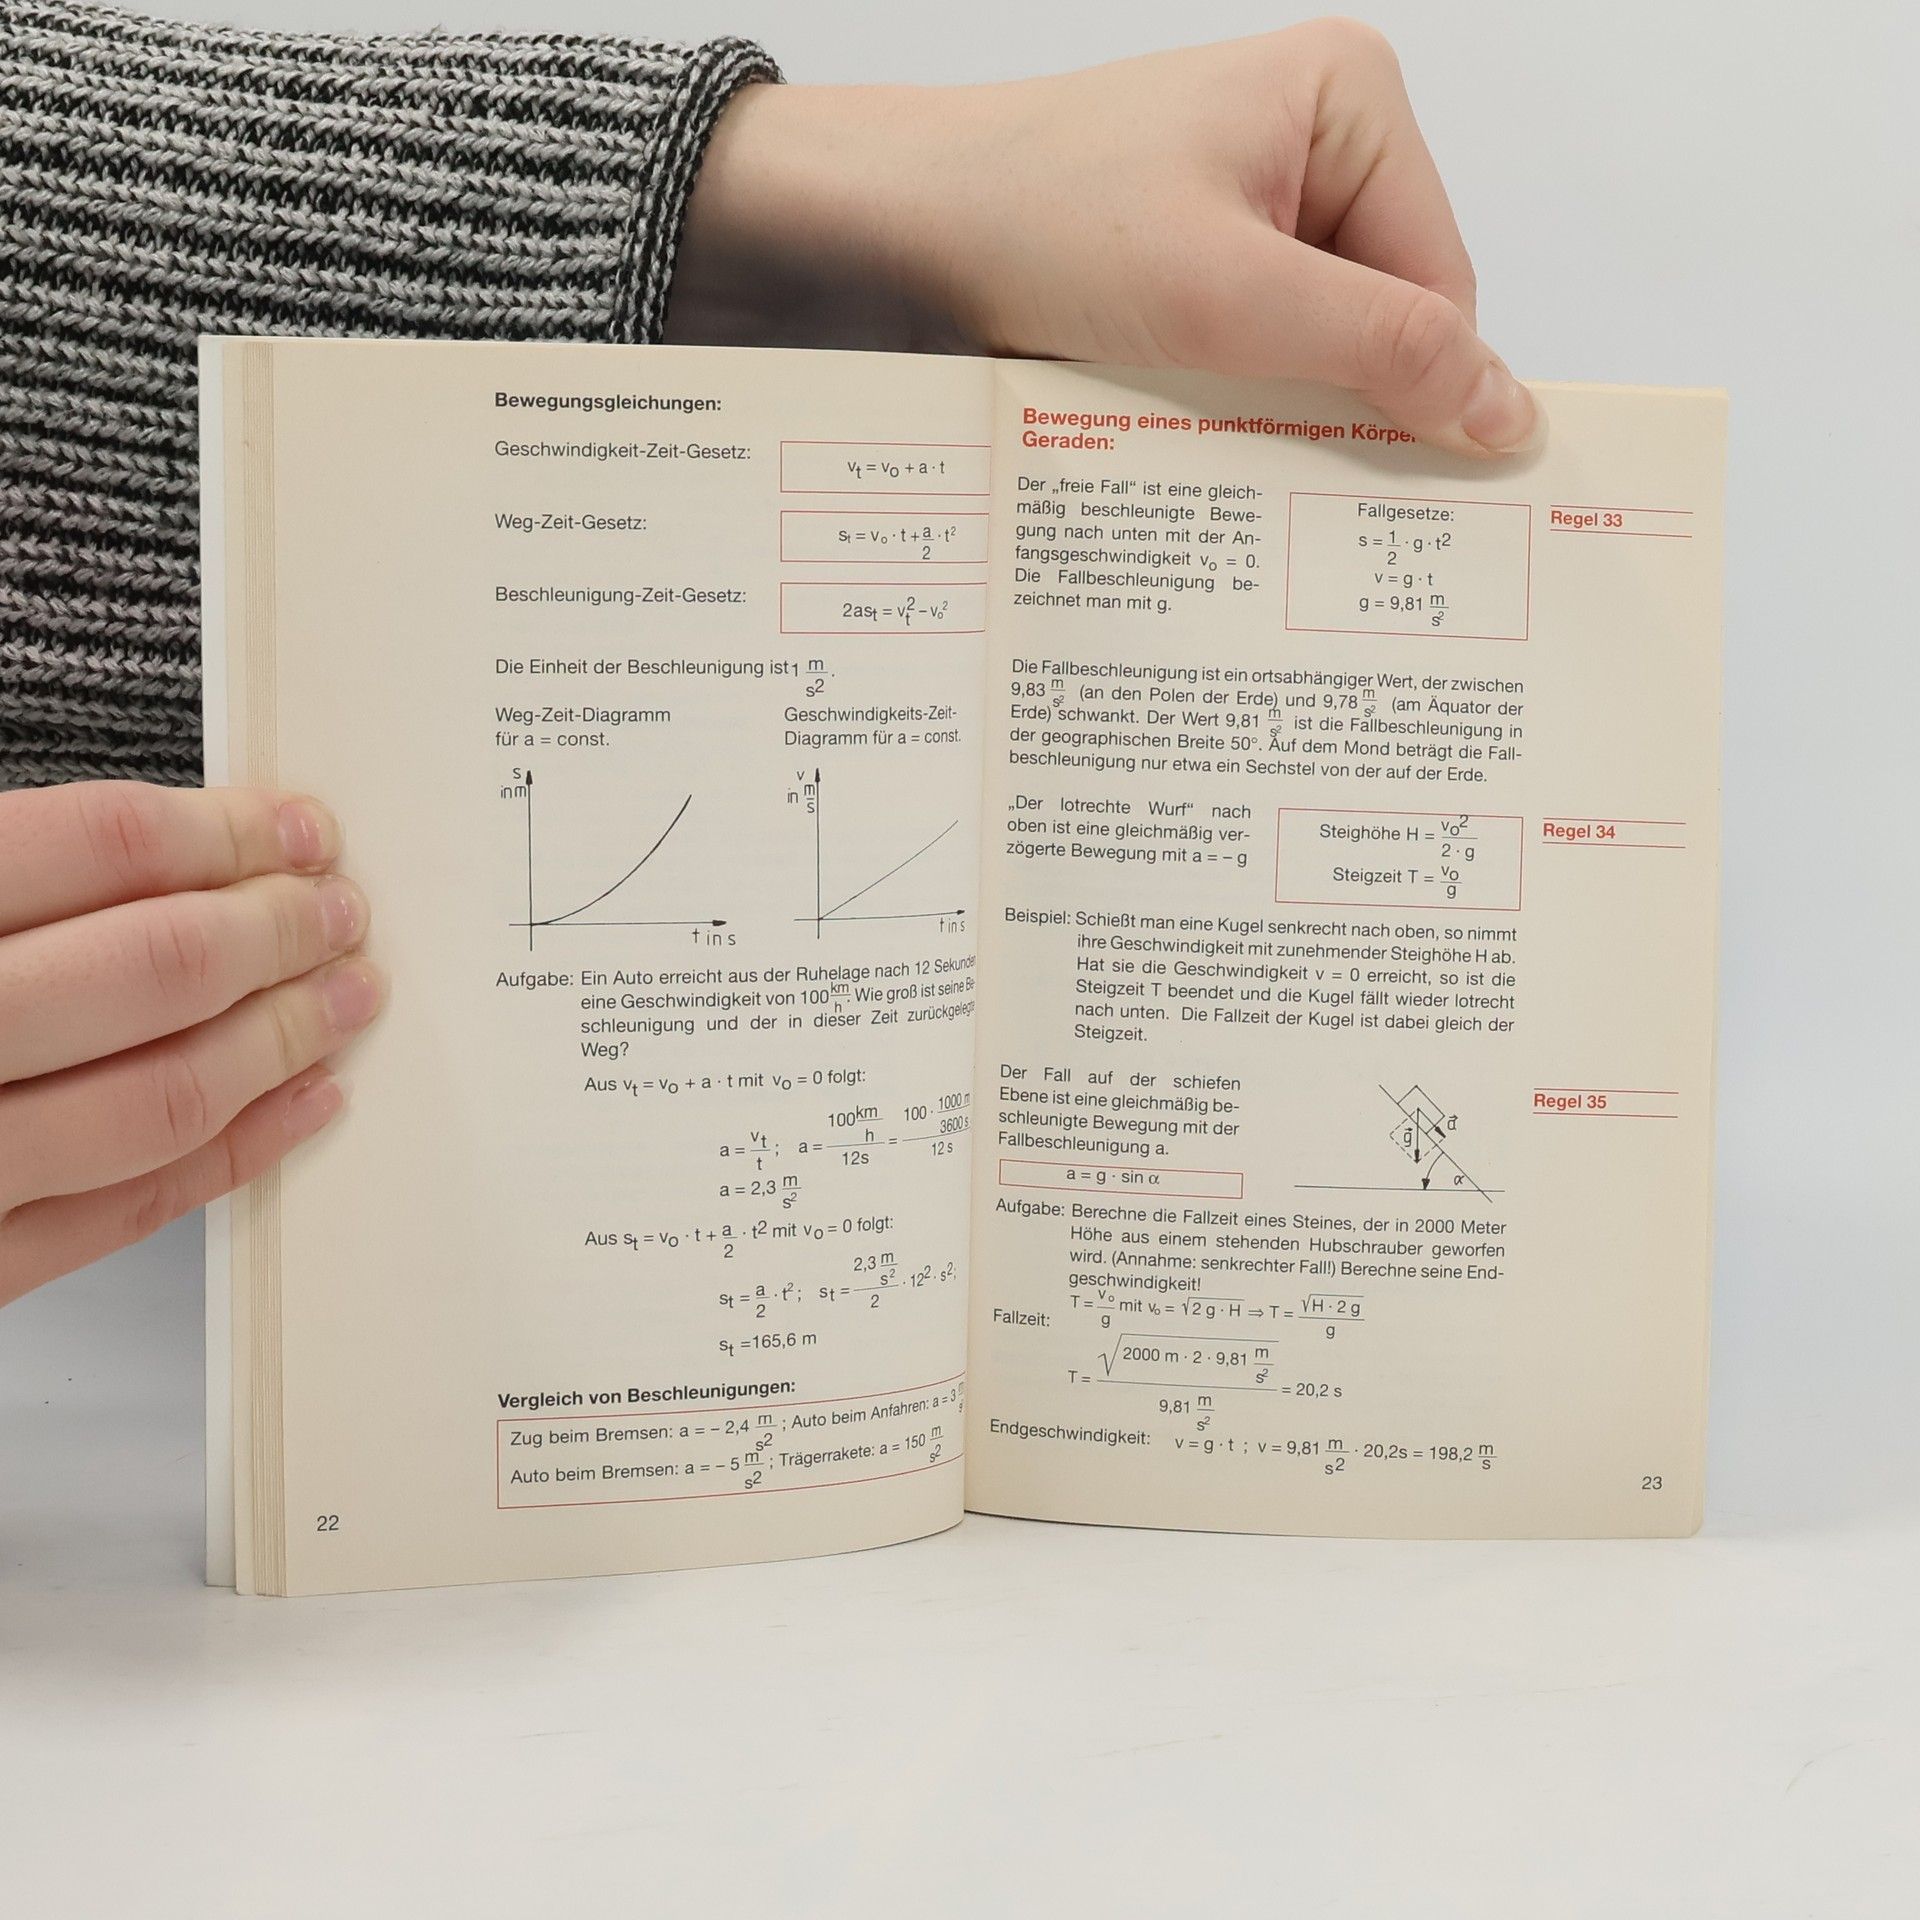 Bewegungsgleichungen:
Geschwindigkeit-Zeit-Gesetz:
vₜ = v₀ + a · t
Weg-Zeit-Gesetz:
sₜ = v₀ · t + a/2 · t²
Beschleunigung-Zeit-Gesetz:
2asₜ = vₜ² – v₀²
Die Einheit der Beschleunigung ist 1 m/s².
Weg-Zeit-Diagramm
für a = const.
Geschwindigkeits-Zeit-
Diagramm für a = const.
s
in m
t in s
v
in m/s
t in s
Aufgabe: Ein Auto erreicht aus der Ruhelage nach 12 Sekunden
eine Geschwindigkeit von 100 km/h. Wie groß ist seine Be-
schleunigung und der in dieser Zeit zurückgelegte
Weg?
Aus vₜ = v₀ + a · t mit v₀ = 0 folgt:
a = vₜ/t ; a = (100 km/h)/12s = (100 · 1000 m/3600 s)/12 s
a = 2,3 m/s²
Aus sₜ = v₀ · t + a/2 · t² mit v₀ = 0 folgt:
sₜ = a/2 · t² ; sₜ = (2,3 m/s²)/2 · 12² · s²;
sₜ = 165,6 m
Vergleich von Beschleunigungen:
Zug beim Bremsen: a = – 2,4 m/s² ; Auto beim Anfahren: a = 3
Auto beim Bremsen: a = – 5 m/s² ; Trägerrakete: a = 150 m/s²
22
Bewegung eines punktförmigen
Geraden:
Der „freie Fall“ ist eine gleich-
mäßig beschleunigte Bewe-
gung nach unten mit der An-
fangsgeschwindigkeit v₀ = 0.
Die Fallbeschleunigung be-
zeichnet man mit g.
Fallgesetze:
s = 1/2 · g · t²
v = g · t
g = 9,81 m/s²
Regel 33
Die Fallbeschleunigung ist ein ortsabhängiger Wert, der zwischen
9,83 m/s² (an den Polen der Erde) und 9,78 m/s² (am Äquator der
Erde) schwankt. Der Wert 9,81 m/s² ist die Fallbeschleunigung in
der geographischen Breite 50°. Auf dem Mond beträgt die Fall-
beschleunigung nur etwa ein Sechstel von der auf der Erde.
„Der lotrechte Wurf“ nach
oben ist eine gleichmäßig ver-
zögerte Bewegung mit a = – g
Steighöhe H = v₀²/(2 · g)
Steigzeit T = v₀/g
Regel 34
Beispiel: Schießt man eine Kugel senkrecht nach oben, so nimmt
ihre Geschwindigkeit mit zunehmender Steighöhe H ab.
Hat sie die Geschwindigkeit v = 0 erreicht, so ist die
Steigzeit T beendet und die Kugel fällt wieder lotrecht
nach unten. Die Fallzeit der Kugel ist dabei gleich der
Steigzeit.
Der Fall auf der schiefen
Ebene ist eine gleichmäßig be-
schleunigte Bewegung mit der
Fallbeschleunigung a.
a = g · sin α
g⃗
a⃗
α
Regel 35
Aufgabe: Berechne die Fallzeit eines Steines, der in 2000 Meter
Höhe aus einem stehenden Hubschrauber geworfen
wird. (Annahme: senkrechter Fall!) Berechne seine End-
geschwindigkeit!
Fallzeit: T = v₀/g mit v₀ = √(2 g · H) ⇒ T = √(H · 2 g)/g
T = √(2000 m · 2 · 9,81 m/s²)/(9,81 m/s²) = 20,2 s
Endgeschwindigkeit: v = g · t ; v = 9,81 m/s² · 20,2s = 198,2 m/s
23